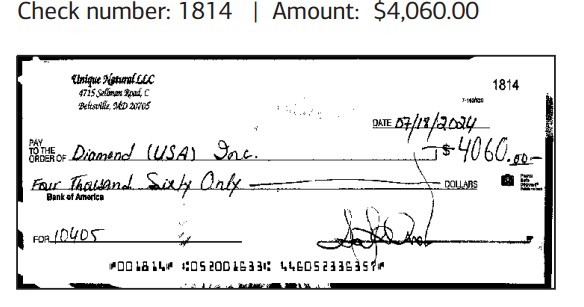 Check number: 1814 | Amount: $4,060.00
Unique Natural LLC
4715 Sellman Road, C
Beltsville, MD 20705
1814
7-163/520
DATE 07/18/2024
PAY TO THE ORDER OF Diamond (USA) Inc. $4060.00
Four Thousand Sixty Only DOLLARS
Bank of America
FOR 10405
⑈001814⑈ ⑆052001633⑆ 446052336357⑈